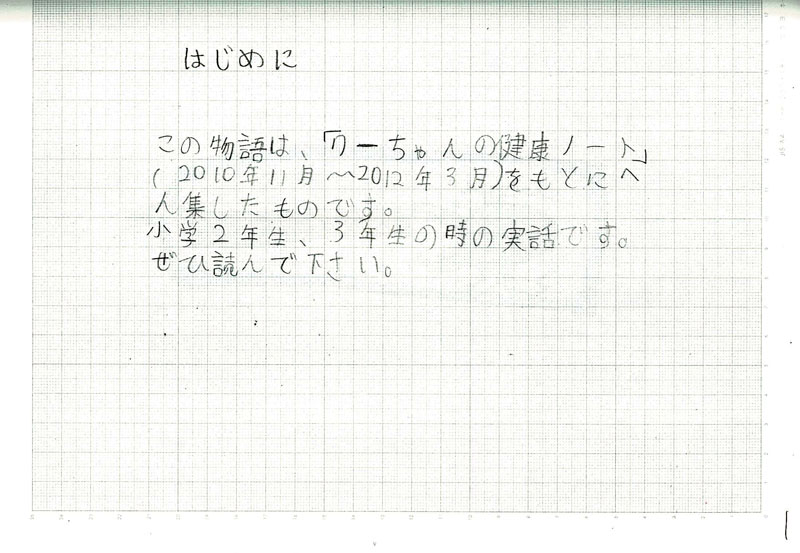 はじめに
この物語は、「りーちゃんの健康ノート」
(2010年11月〜2012年3月)をもとにへ
ん集したものです。
小学2年生、3年生の時の実話です。
ぜひ読んで下さい。
1